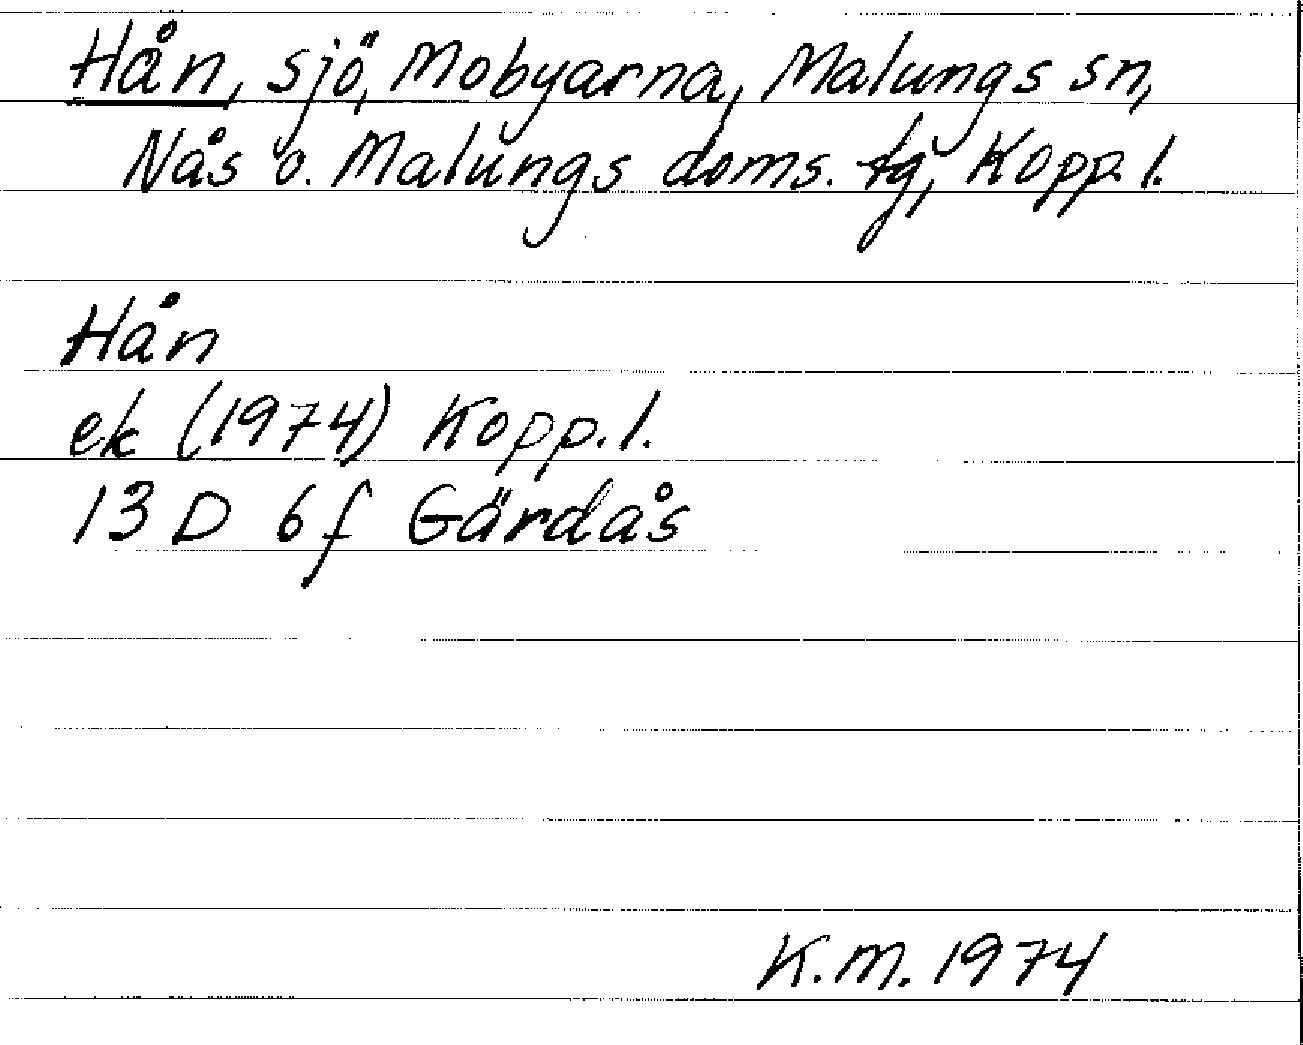 Hån, sjö, Mobyarna, Malungs sn,
Nås o. Malungs doms. tg, Kopp. l.
Hån
ek (1974) Kopp. l.
13 D 6 f Gärdås
K.M. 1974